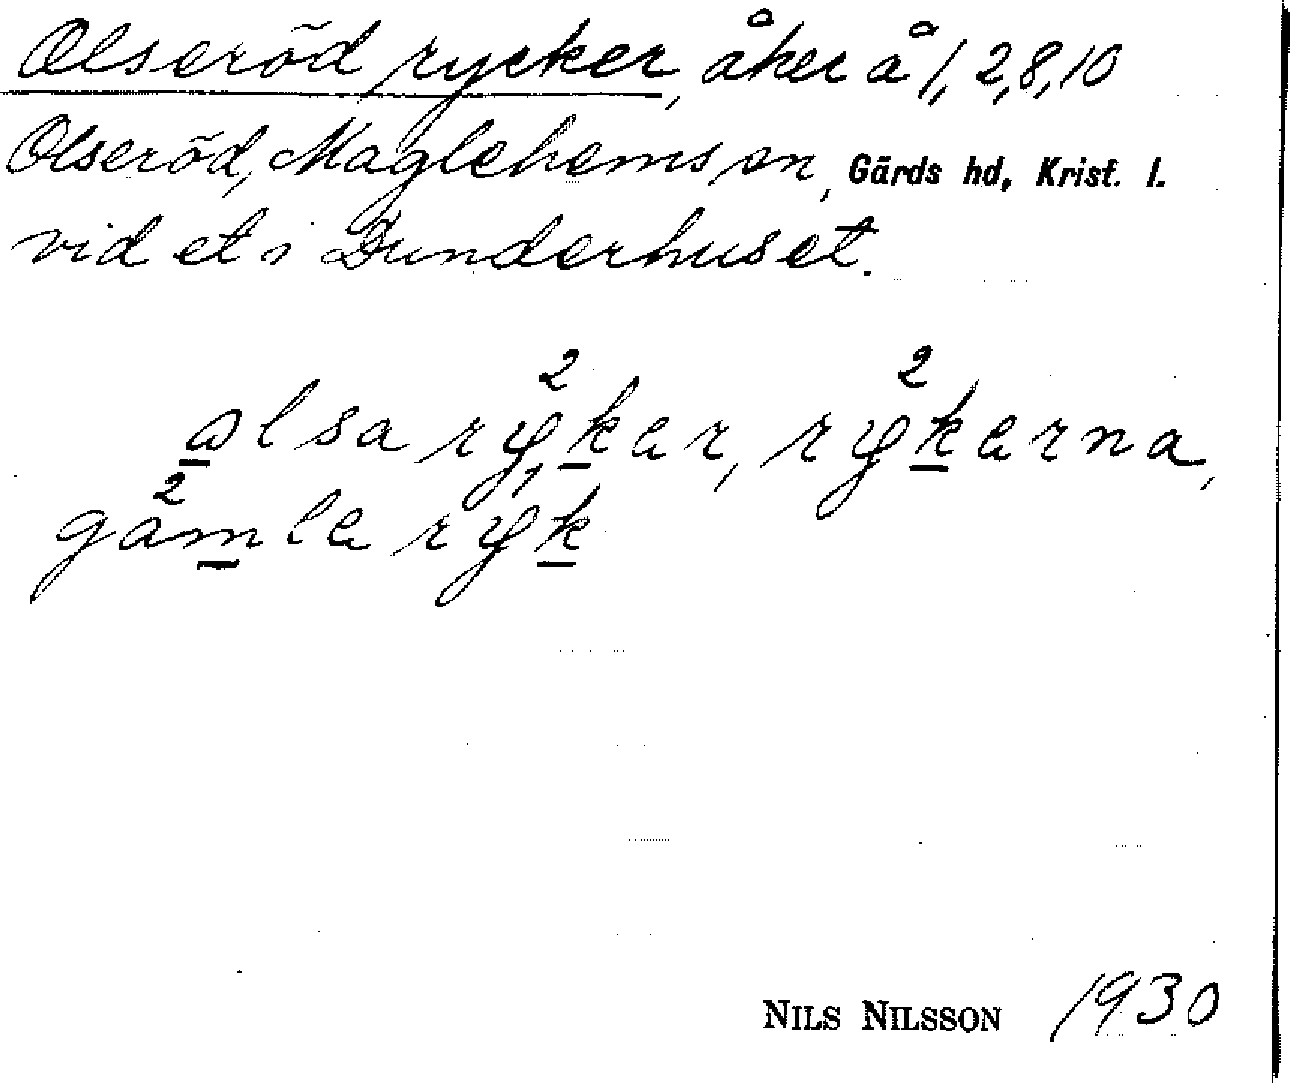 Olseröd rycker, åker å 1, 2, 8, 10
Olseröd, Maglehems sn, Gärds hd, Krist. l.
vid et i Dunderhuset.
alsa rykar, rykarna,
gamla ryk
NILS NILSSON 1930